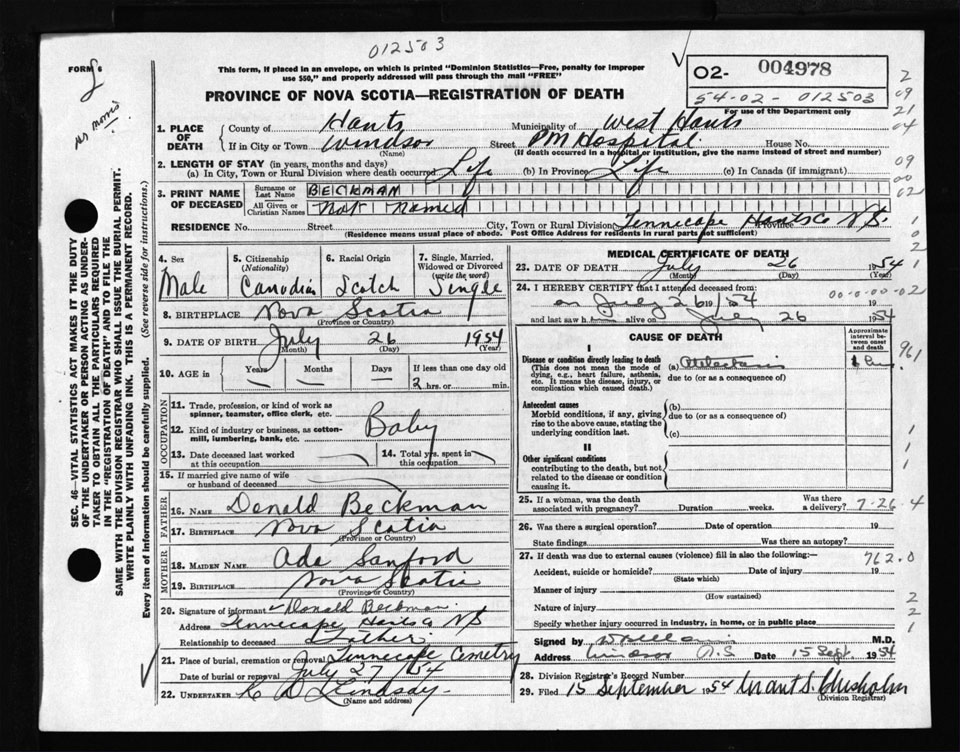 012503
FORM 6
This form, if placed in an envelope, on which is printed "Dominion Statistics—Free, penalty for improper
use $50," and properly addressed will pass through the mail "FREE"
PROVINCE OF NOVA SCOTIA—REGISTRATION OF DEATH
02- 004978
54-02-012503
For use of the Department only
Mrs Morris
SEC. 46—VITAL STATISTICS ACT MAKES IT THE DUTY
OF THE UNDERTAKER OR PERSON ACTING AS UNDER-
TAKER TO OBTAIN ALL THE PARTICULARS REQUIRED
IN THE "REGISTRATION OF DEATH" AND TO FILE THE
SAME WITH THE DIVISION REGISTRAR WHO SHALL ISSUE THE BURIAL PERMIT.
WRITE PLAINLY WITH UNFADING INK. THIS IS A PERMANENT RECORD.
Every item of information should be carefully supplied. (See reverse side for instructions.)
1. PLACE OF DEATH
County of Hants Municipality of West Hants
If in City or Town Windsor Street PM Hospital House No.
(Name) (If death occurred in a hospital or institution, give the name instead of street and number)
2. LENGTH OF STAY (in years, months and days)
(a) In City, Town or Rural Division where death occurred Life (b) In Province Life (c) In Canada (if immigrant)
3. PRINT NAME OF DECEASED
Surname or Last Name BECKMAN
All Given or Christian Names Not Named
RESIDENCE No. Street City, Town or Rural Division Tennecape Hants Co N.S. Province
(Residence means usual place of abode. Post Office Address for residents in rural parts not sufficient)
4. Sex
Male
5. Citizenship
(Nationality)
Canadian
6. Racial Origin
Scotch
7. Single, Married,
Widowed or Divorced
(write the word)
Single
8. BIRTHPLACE Nova Scotia
(Province or Country)
9. DATE OF BIRTH July 26 1954
(Month) (Day) (Year)
10. AGE in
Years Months Days
If less than one day old
2 hrs. or min.
OCCUPATION
11. Trade, profession, or kind of work as
spinner, teamster, office clerk, etc.
12. Kind of industry or business, as cotton-
mill, lumbering, bank, etc.
Baby
13. Date deceased last worked
at this occupation
14. Total yrs. spent in
this occupation
15. If married give name of wife
or husband of deceased
FATHER
16. Name Donald Beckman
17. Birthplace Nova Scotia
(Province or Country)
MOTHER
18. MAIDEN NAME Ada Sanford
19. BIRTHPLACE Nova Scotia
(Province or Country)
20. Signature of informant Donald Beckman
Address Tennecape Hants Co NS
Relationship to deceased Father
21. Place of burial, cremation or removal Tennecape Cemetry
Date of burial or removal July 27/54
22. UNDERTAKER Lindsay
(Name and address)
MEDICAL CERTIFICATE OF DEATH
23. DATE OF DEATH July 26 1954
(Month) (Day) (Year)
24. I HEREBY CERTIFY that I attended deceased from:
on July 26 19/54 19
and last saw h alive on July 26 1954
CAUSE OF DEATH
Approximate
interval be-
tween onset
and death
I
Disease or condition directly leading to death
(This does not mean the mode of
dying, e.g., heart failure, asthenia,
etc. It means the disease, injury, or
complication which caused death.)
(a) Atelectasis
due to (or as a consequence of)
Antecedent causes
Morbid conditions, if any, giving
rise to the above cause, stating the
underlying condition last.
(b)
due to (or as a consequence of)
(c)
II
Other significant conditions
contributing to the death, but not
related to the disease or condition
causing it.
25. If a woman, was the death
associated with pregnancy? Duration weeks. Was there
a delivery? 7-26-4
26. Was there a surgical operation? Date of operation 19
State findings Was there an autopsy?
27. If death was due to external causes (violence) fill in also the following:— 762.0
Accident, suicide or homicide? Date of injury 19
(State which)
Manner of injury
(How sustained)
Nature of injury
Specify whether injury occurred in industry, in home, or in public place
Signed by M.D.
Address Windsor N.S Date 15 Sept. 1954
28. Division Registrar's Record Number
29. Filed 15 September 1954 Grant S. Chisholm
(Division Registrar)
2
09
21
04
09
00
02
1
0
2
1
00-0-00-02
961
1
1
1
2
2
1